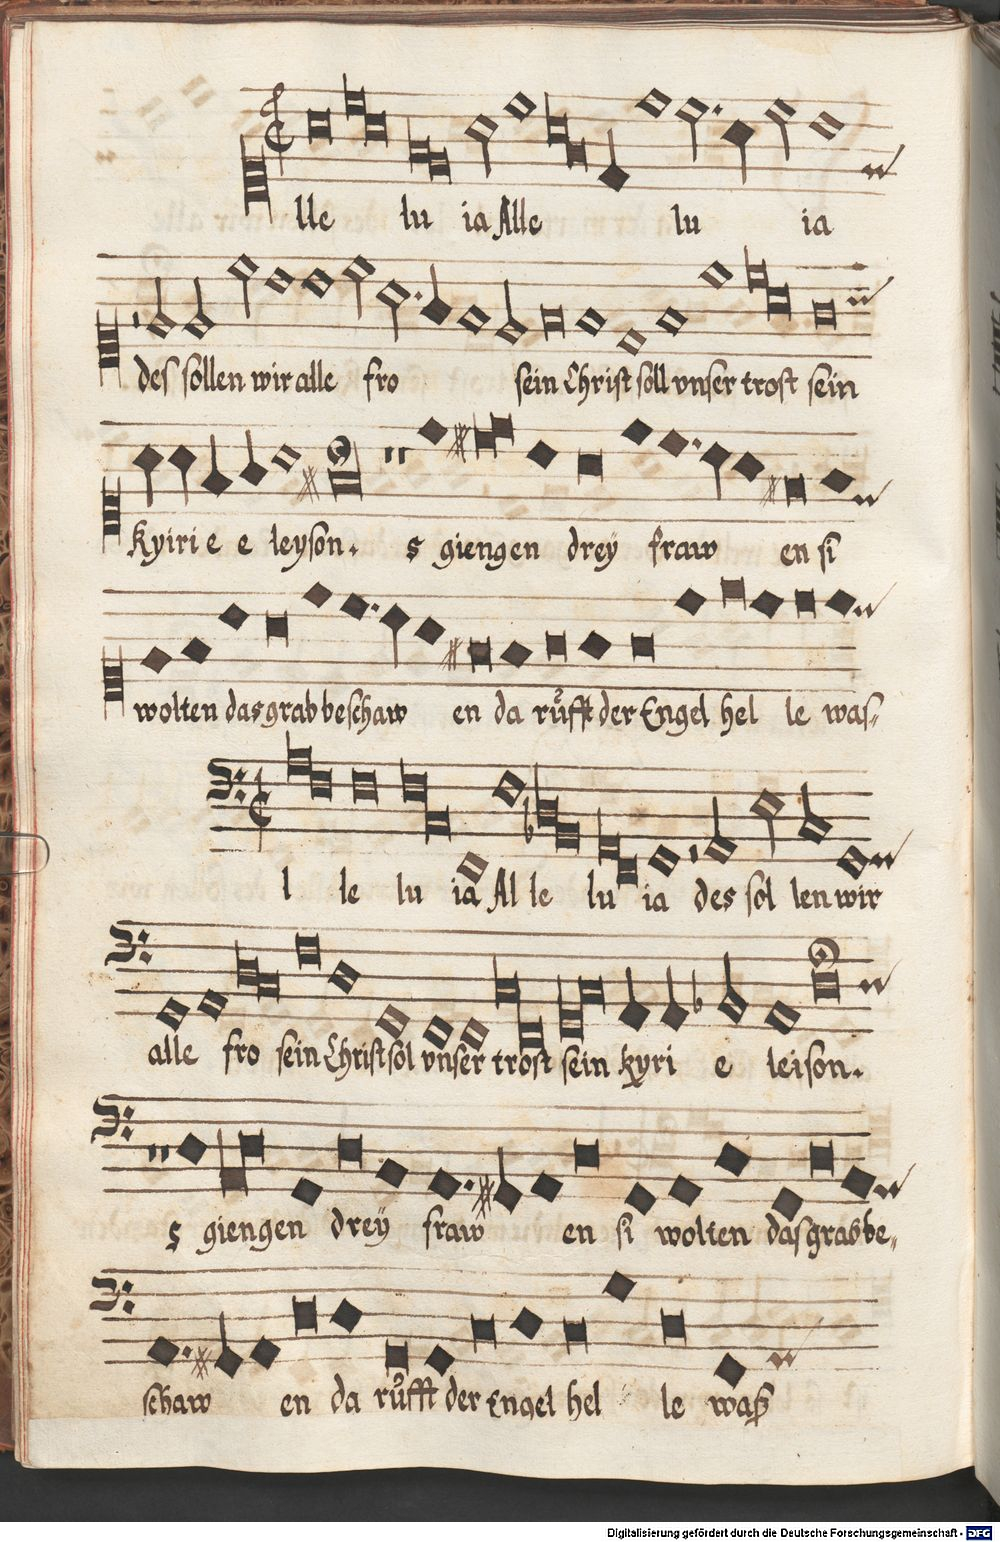 lle lu ia Alle lu ia
des sollen wir alle fro sein Christ soll vnser trost sein
kyiri e e leyson. s giengen dreÿ fraw en si
wolten das grab beschaw en da růfft der Engel hel le was
l le lu ia Al le lu ia des sol len wir
alle fro sein Christ sol vnser trost sein kyri e leison.
s giengen dreÿ fraw en si wolten das grab be
schaw en da růfft der Engel hel le waß
Digitalisierung gefördert durch die Deutsche Forschungsgemeinschaft - DFG